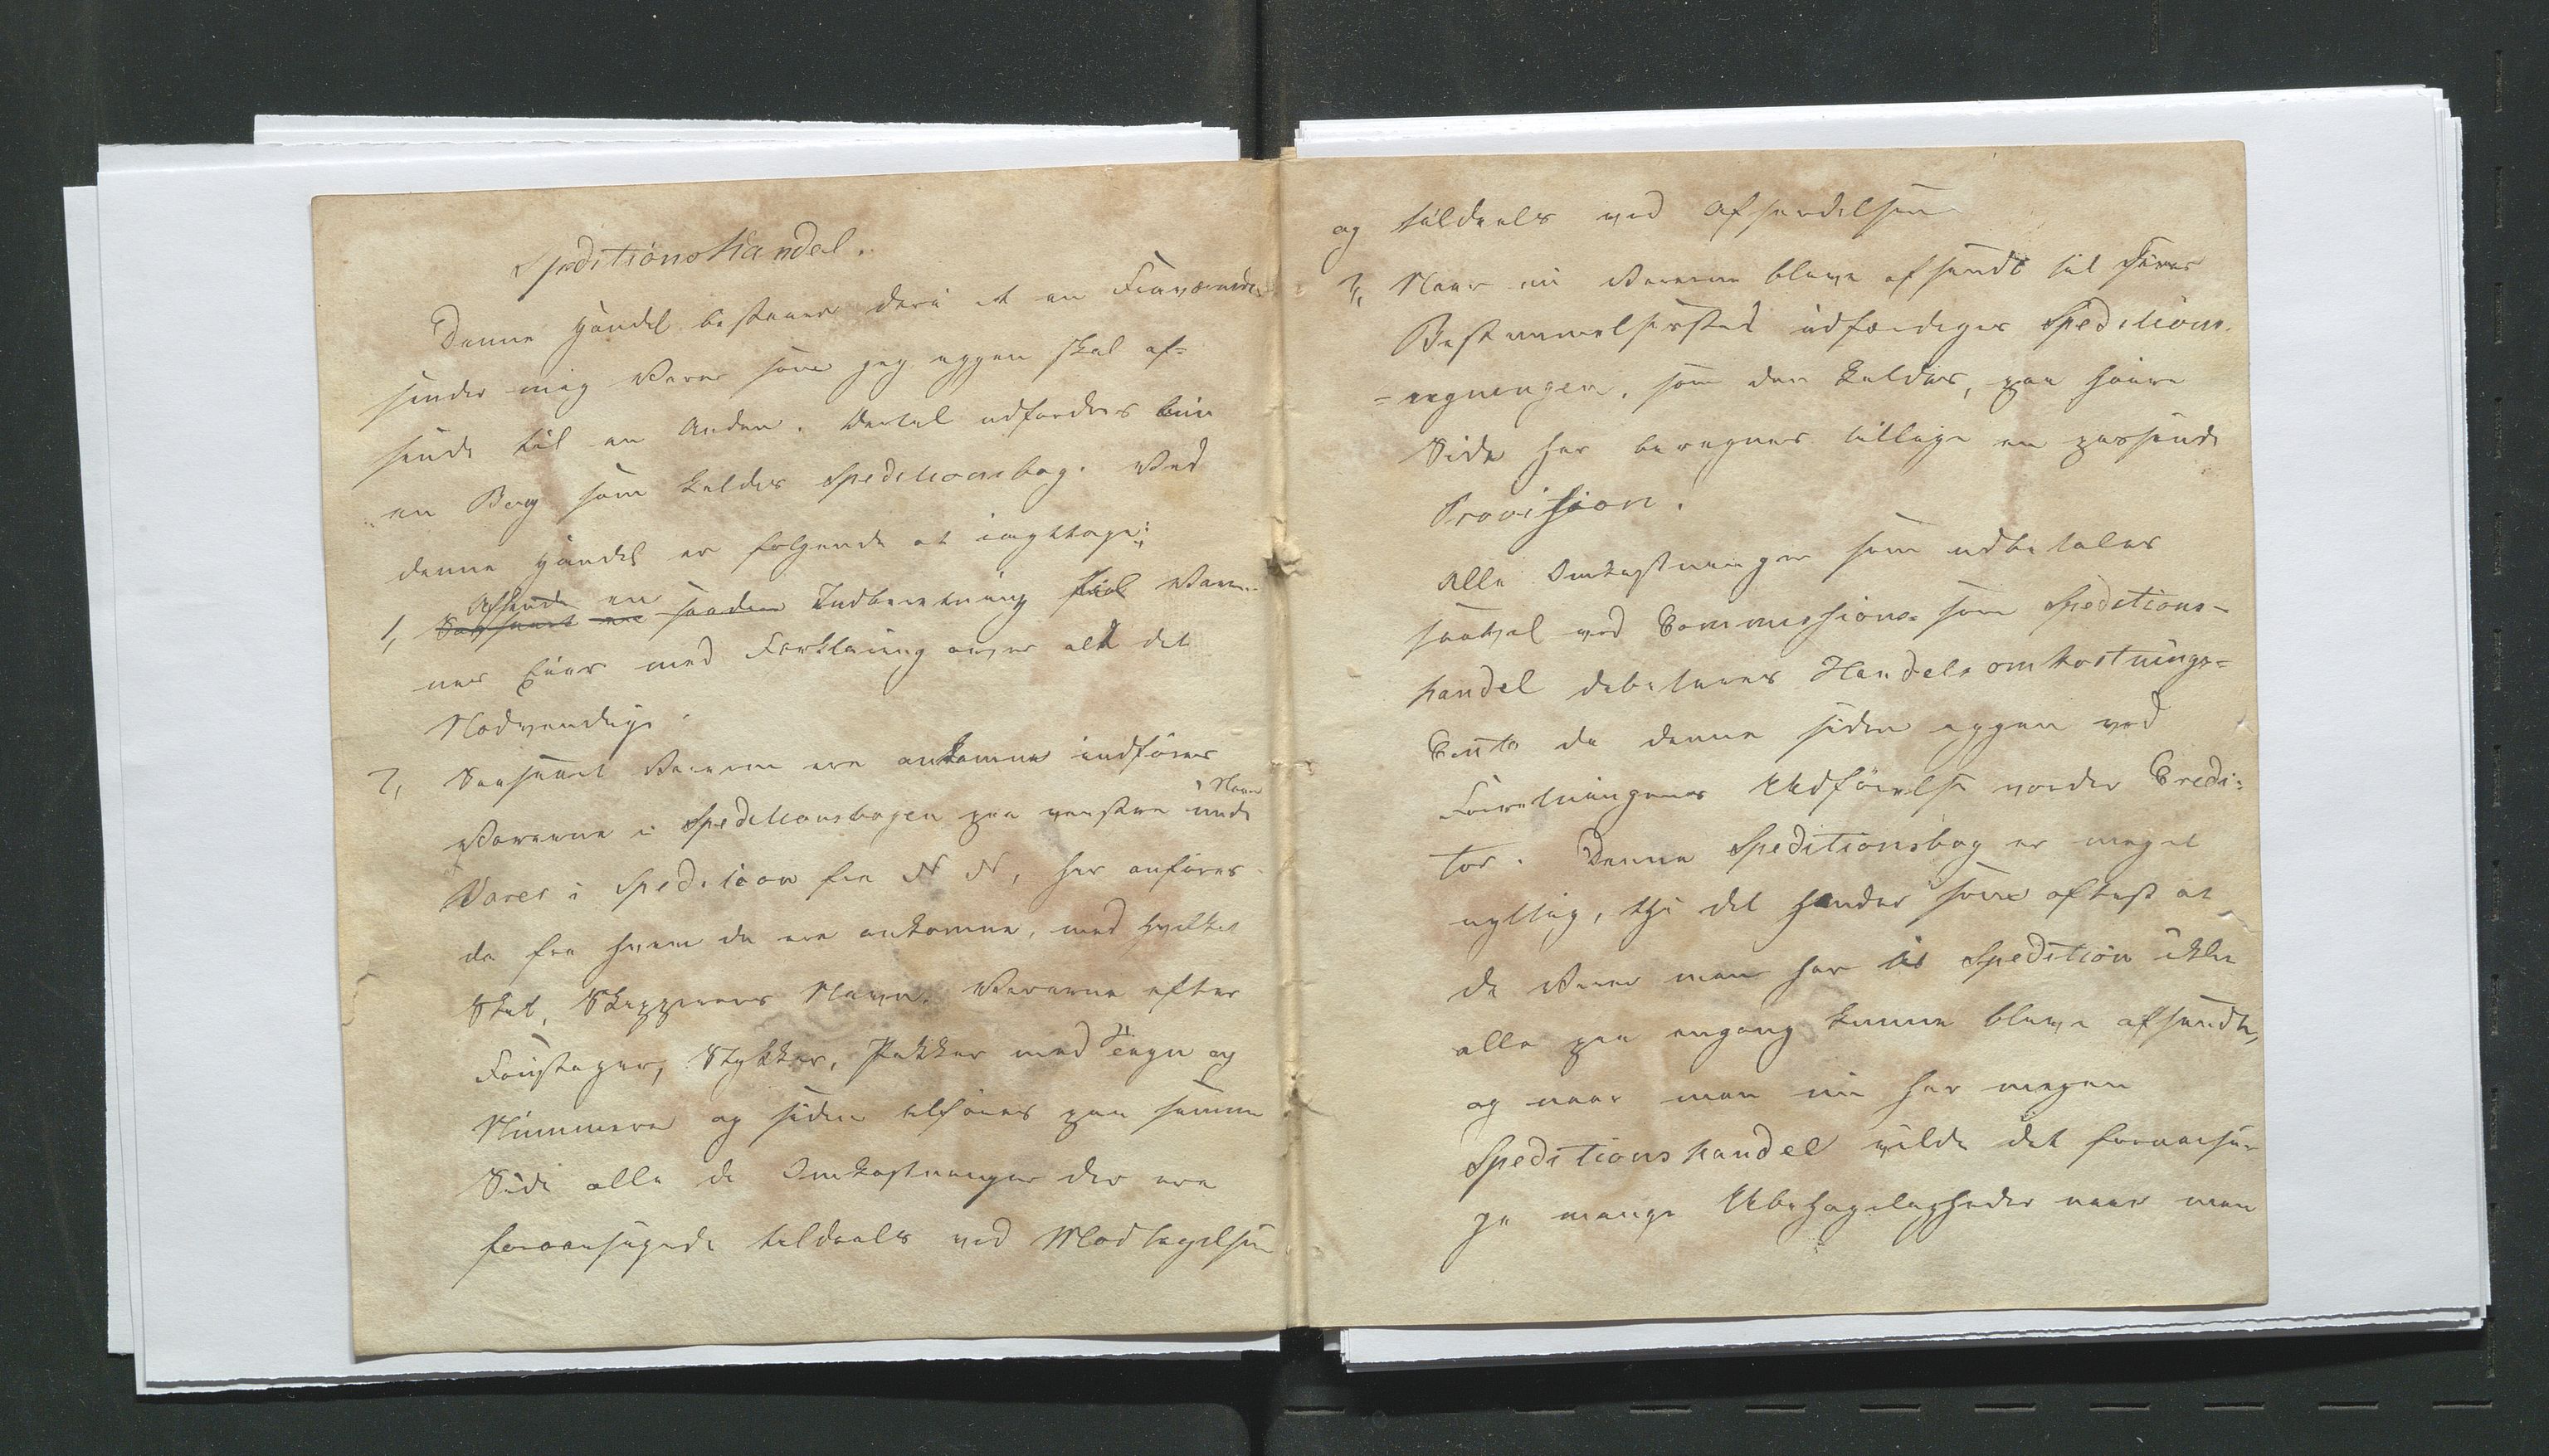 Speditionshandel.
Denne Handel bestaaer deri at en Fraværende
sender mig Varer som jeg igjen skal af=
sende til en Anden. Dertil udfordres kun
en Bog som kaldes Speditionsbog. Ved
denne Handel er følgende at iagttage:
Afsende en
1, Saasnart en saadan Indberetning til Varer-
nes Eier med Forklaring over alt det
Nødvendige.
2, Saasnart Varerne ere ankomne indføres
Navn
Varerne i Speditionsbogen paa venstre under
Varer i Spedition fra N N, her anføres
da fra hvem de ere ankomne, med hvilket
Skib, Skipperens Navn. Varerne efter
Foustager, Stykker, Pakker med Tegn og
Nummere og siden tilføies paa samme
Side alle de Omkostninger der ere
foraarsagede tildeels ved Modtagelsen
og tildeels ved Afsendelsen
3, Naar nu Varerne bleve afsendt til deres
Bestemmelsessted udfærdiges Speditions-
=regningen, som den kaldes, paa høire
Side her beregnes tillige en passende
Provision.
Alle Omkostninger som udbetales
saavel ved Commissions= som Speditions-
handel debiteres Handelsomkostnings=
Conto da denne siden igjen ved
Forretningens Udførelse vorder Credi=
tor. Denne Speditionsbog er meget
nyttig, thi det hænder som oftest at
de Varer man har i Spedition ikke
alle paa engang kunne bleve afsendte,
og naar man nu har megen
Speditionshandel vilde det foraarsa-
ge mange Ubehageligheder naar man